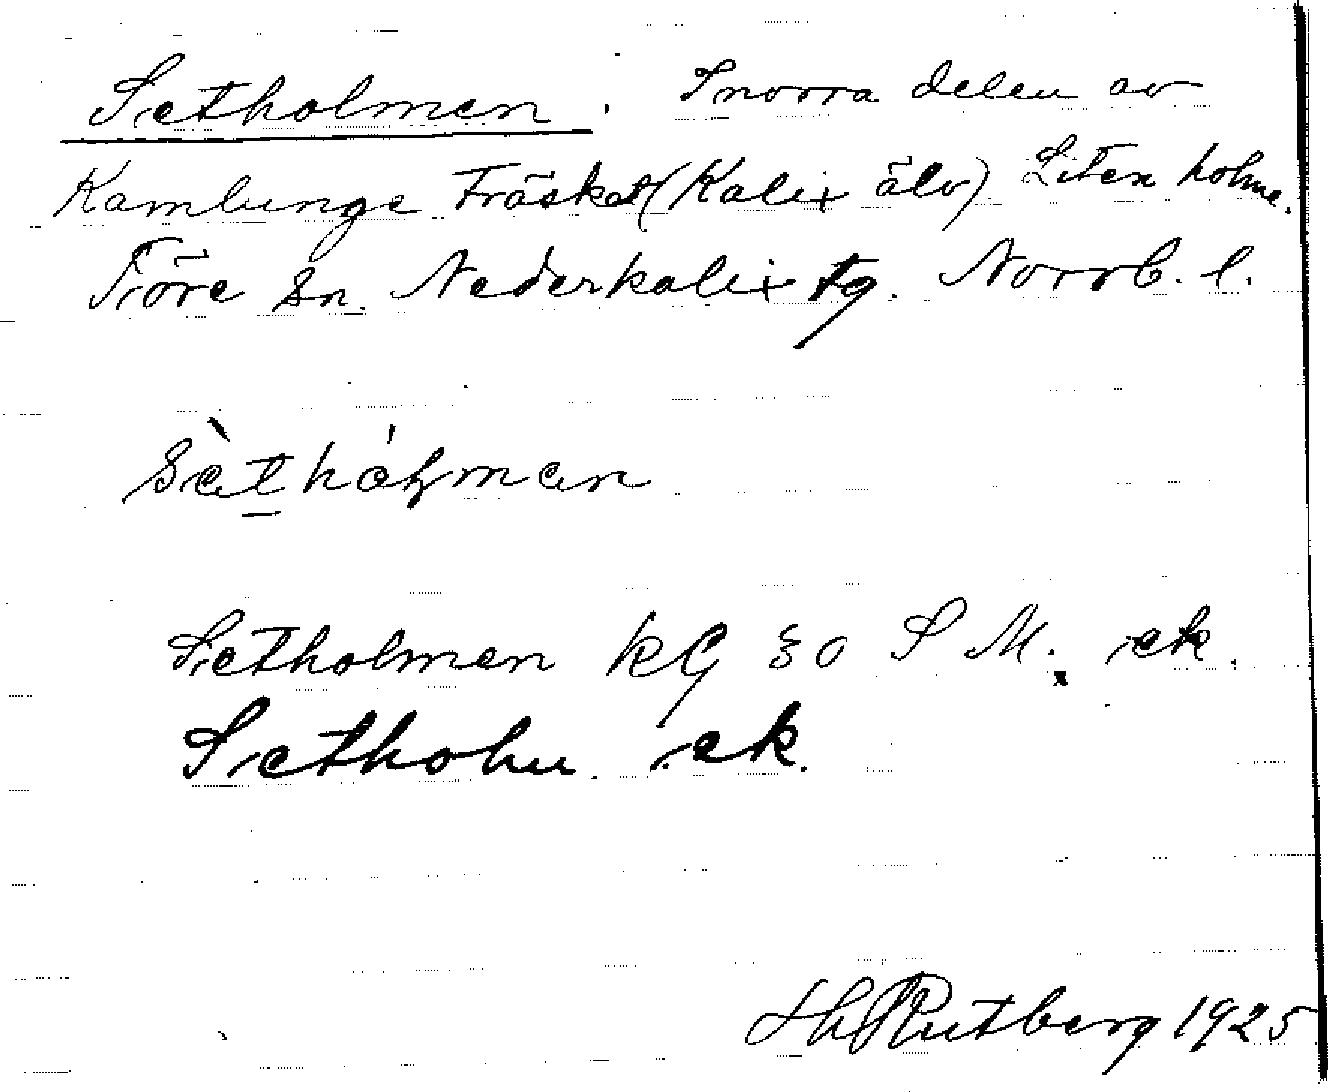 Setholmen. I norra delen av
Kamlunge Träsket (Kalix älv) Liten holme.
Töre Sn. Nederkalix tg. Norrb. l.
sèthólmen
Setholmen KG 30 S M. ek.
Setholm ek.
Rutberg 1925